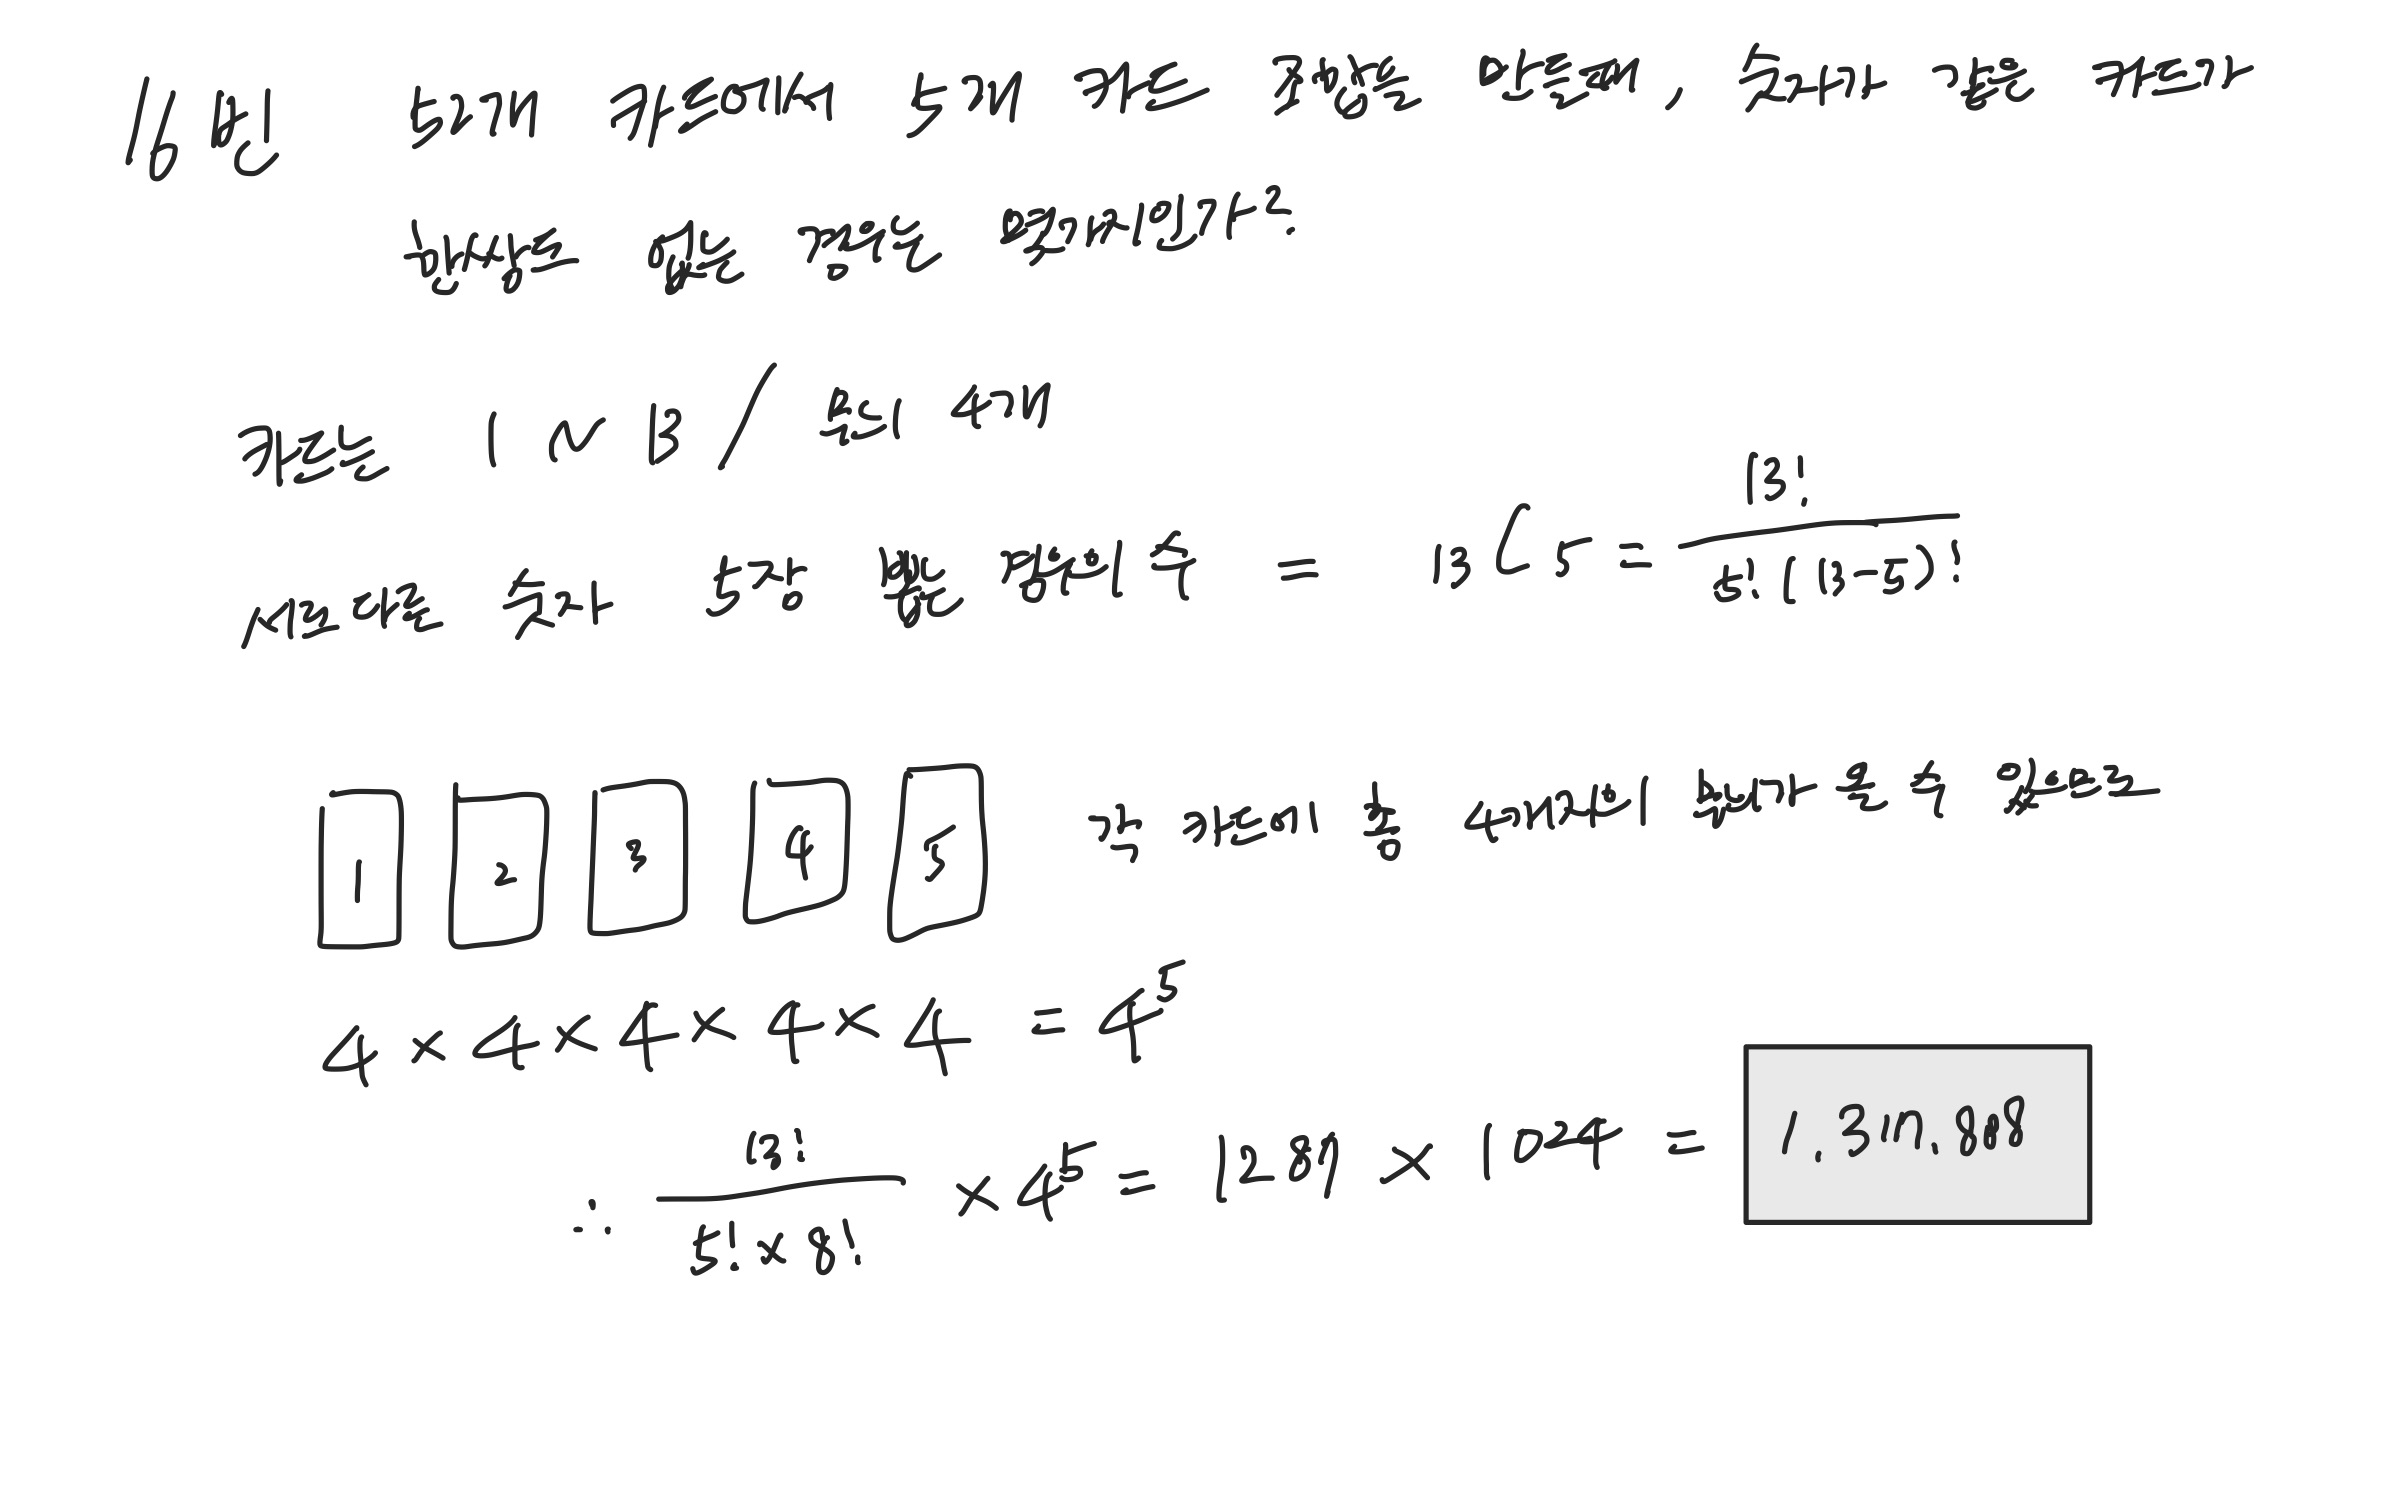 16번 52개 카드에서 5개 카드 조합을 만들때, 숫자가 같은 카드가
한쌍도 없는 경우는 몇가지인가?
카드는 1 ~ 13 / 무늬 4개
서로다른 숫자 5장 뽑는 경우의 수 = 13C5 = 13! / 5!(13-5)!
1 2 3 4 5 각 카드에 총 4개씩의 무늬가 올 수 있으므로
4 × 4 × 4 × 4 × 4 = 4^5
∴ 13! / 5! × 8! × 4^5 = 1289 × 1024 = 1.317.888